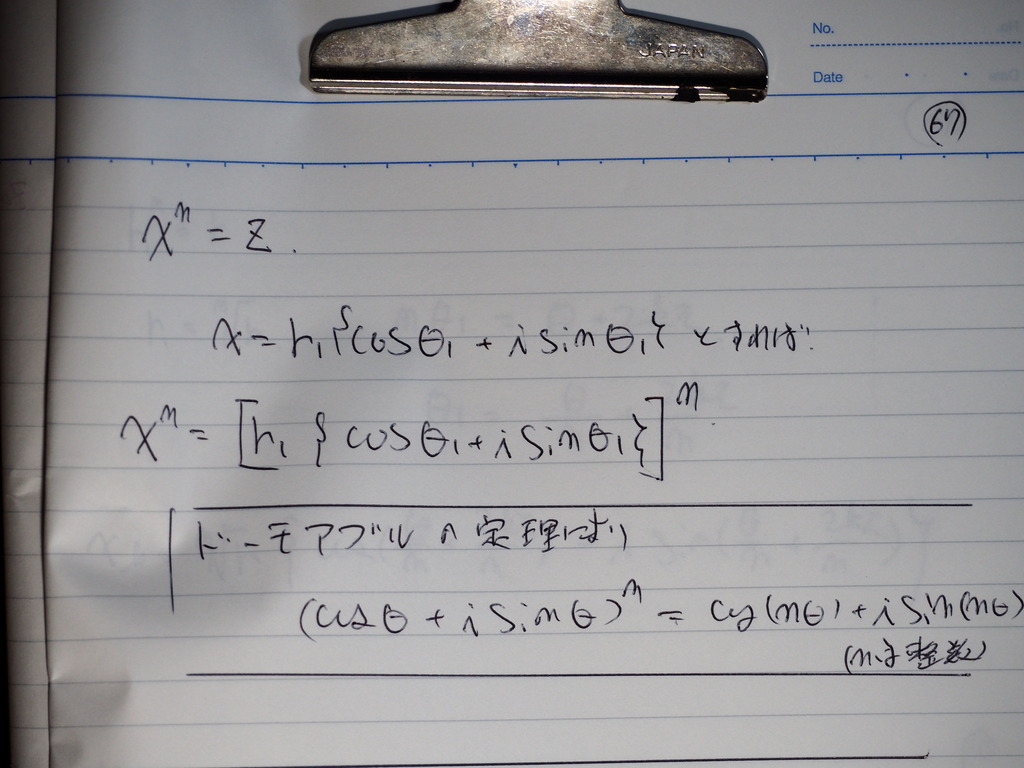 JAPAN
No.
Date
67
x^n = z.
x = r₁{cosθ₁ + i sinθ₁} とすれば.
x^n = [r₁ { cosθ₁ + i sinθ₁}]^n
ド・モアブルの定理により
(cosθ + i sinθ)^n = cos(nθ) + i sin(nθ)
(nは整数)